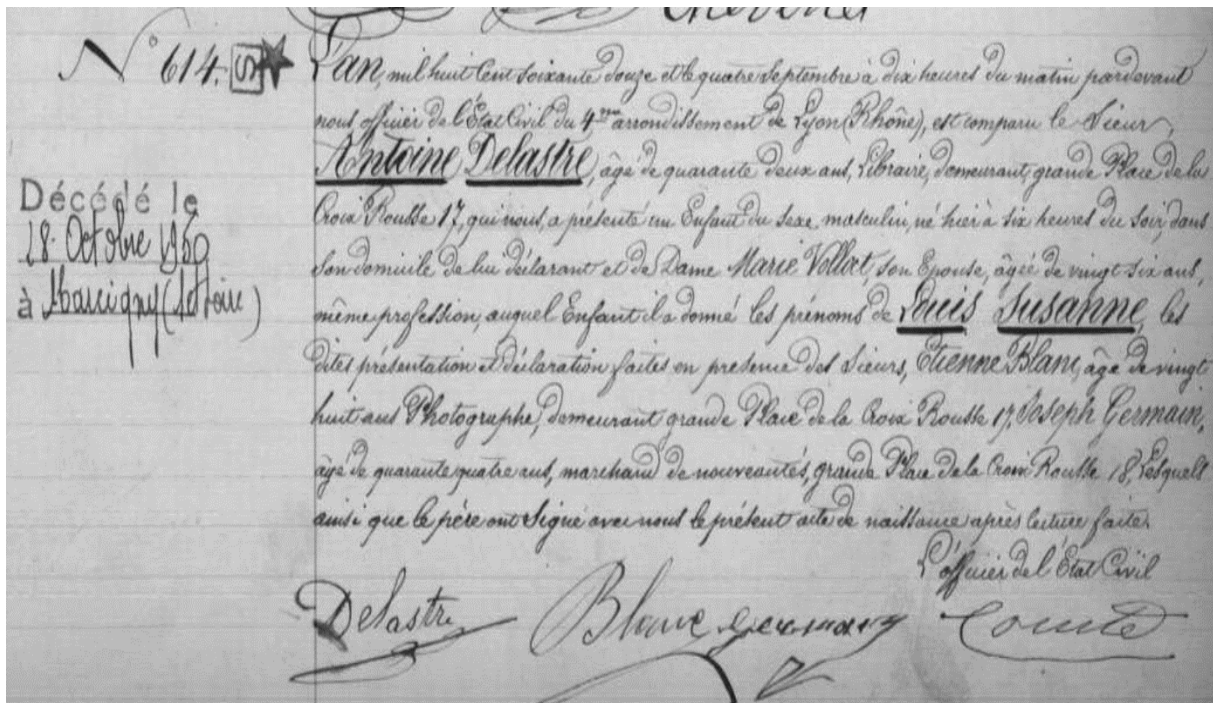 N° 614. S
L'an, mil huit cent soixante douze et le quatre Septembre à dix heures du matin pardevant
nous officier de l'État Civil du 4me arrondissement de Lyon (Rhône), est comparu le Sieur,
Antoine Delastre, âgé de quarante deux ans, Libraire, demeurant grande Place de la
Croix Rousse 17, qui nous, a présenté un Enfant du sexe masculin, né hier à six heures du soir, dans
son domicile de lui déclarant et de Dame Marie, son Epouse, âgée de vingt six ans,
même profession, auquel Enfant il a donné les prénoms de Louis Susanne, les
dites présentation et déclaration faites en présence des Sieurs, Etienne Blanc, âgé de vingt
huit ans Photographe, demeurant grande Place de la Croix Rousse 17, Joseph Germain,
âgé de quarante quatre ans, marchand de nouveautés, grande Place de la Croix Rousse 18, Lesquels
ainsi que le père ont Signé avec nous le présent acte de naissance après lecture faite.
L'officier de l'État Civil
Delastre Blanc Germain Comte
Décédé le
28 Octobre 1950
à Marcigny (